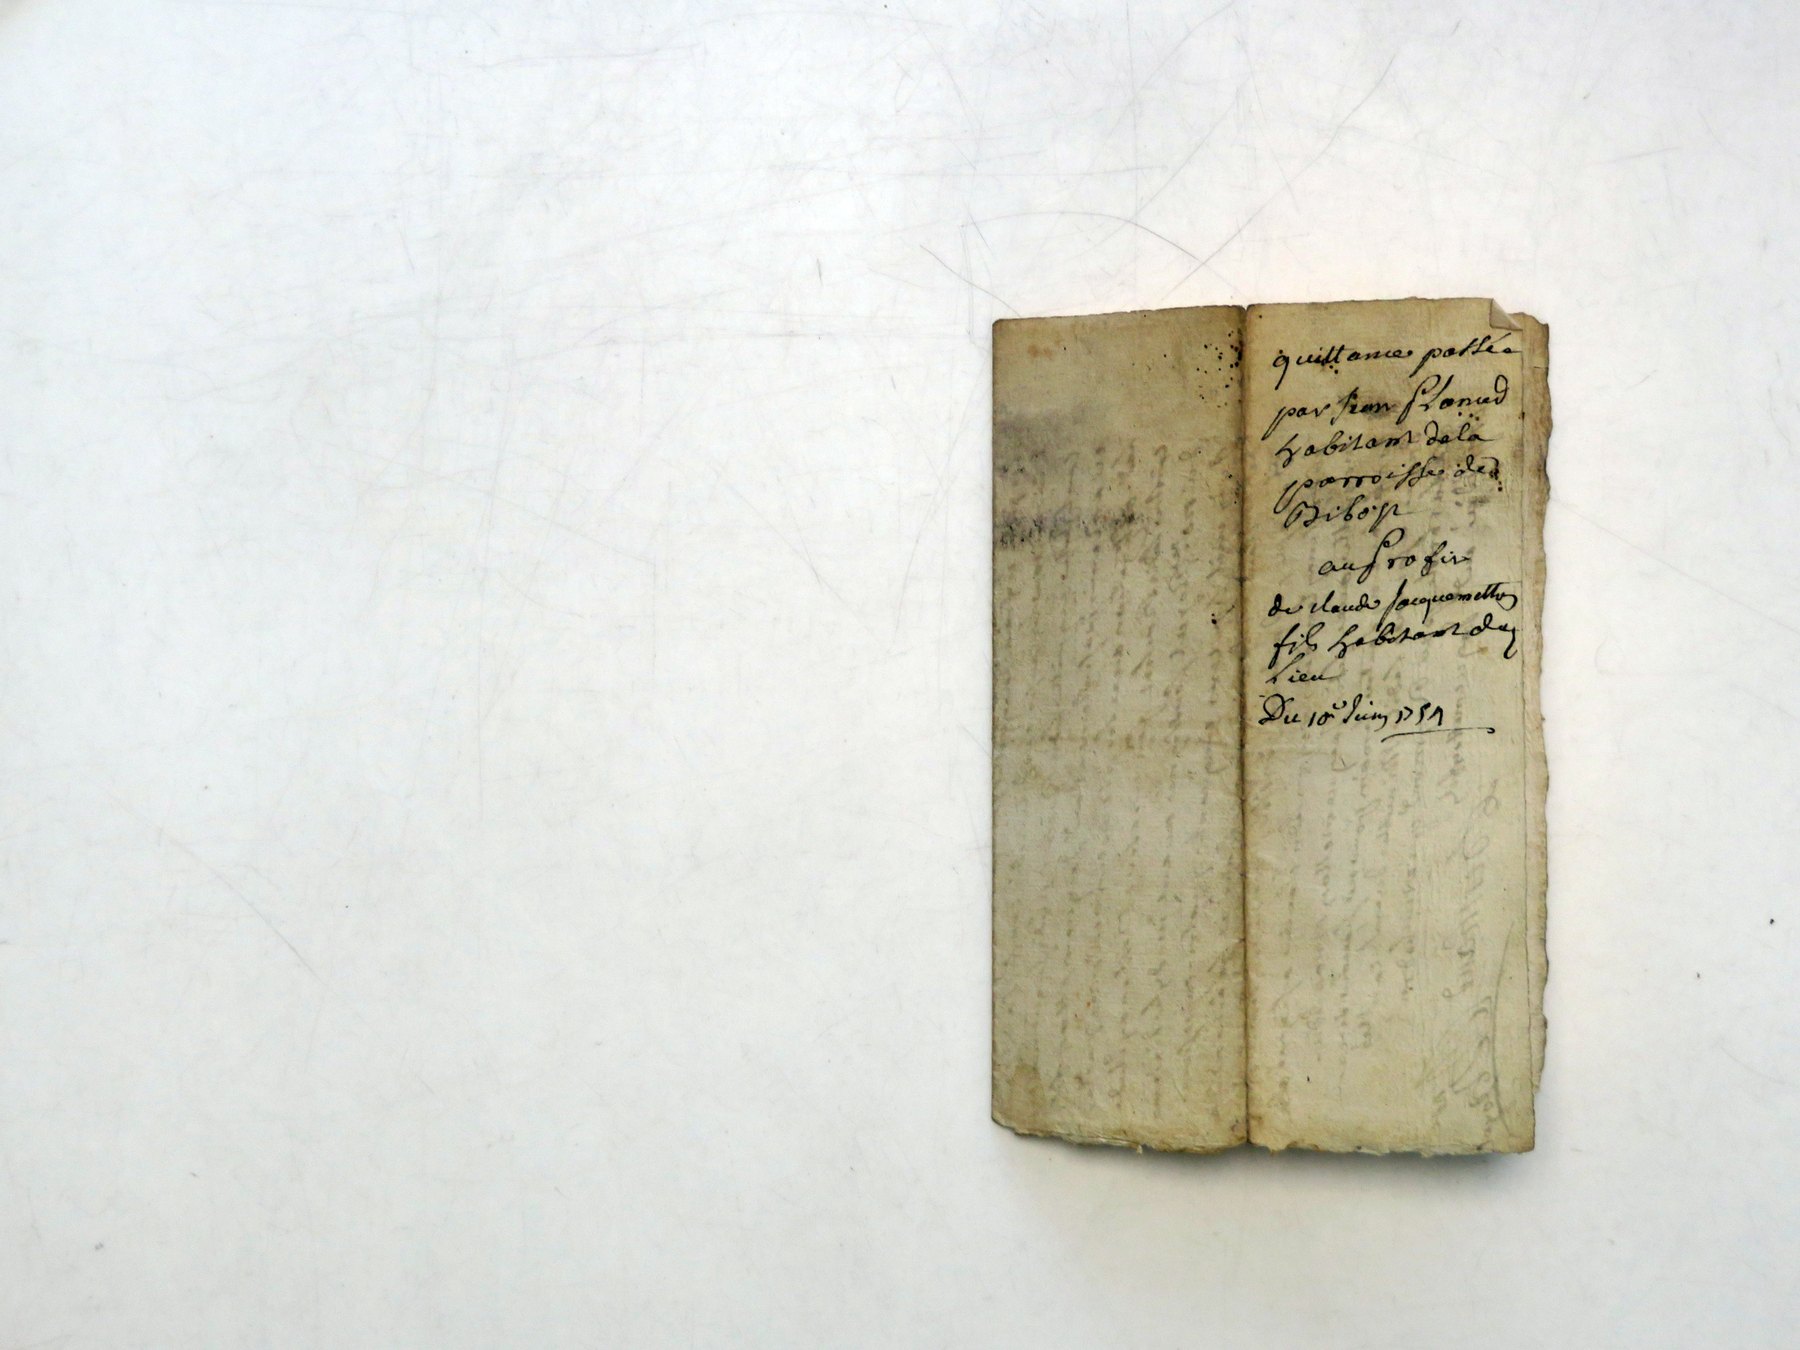 quittance passée
par Jean Flamed
habitant de la
parroisse de
au profit
de claude Jacquemetton
fils habitant du
Lieu
Du 10e Juin 1754